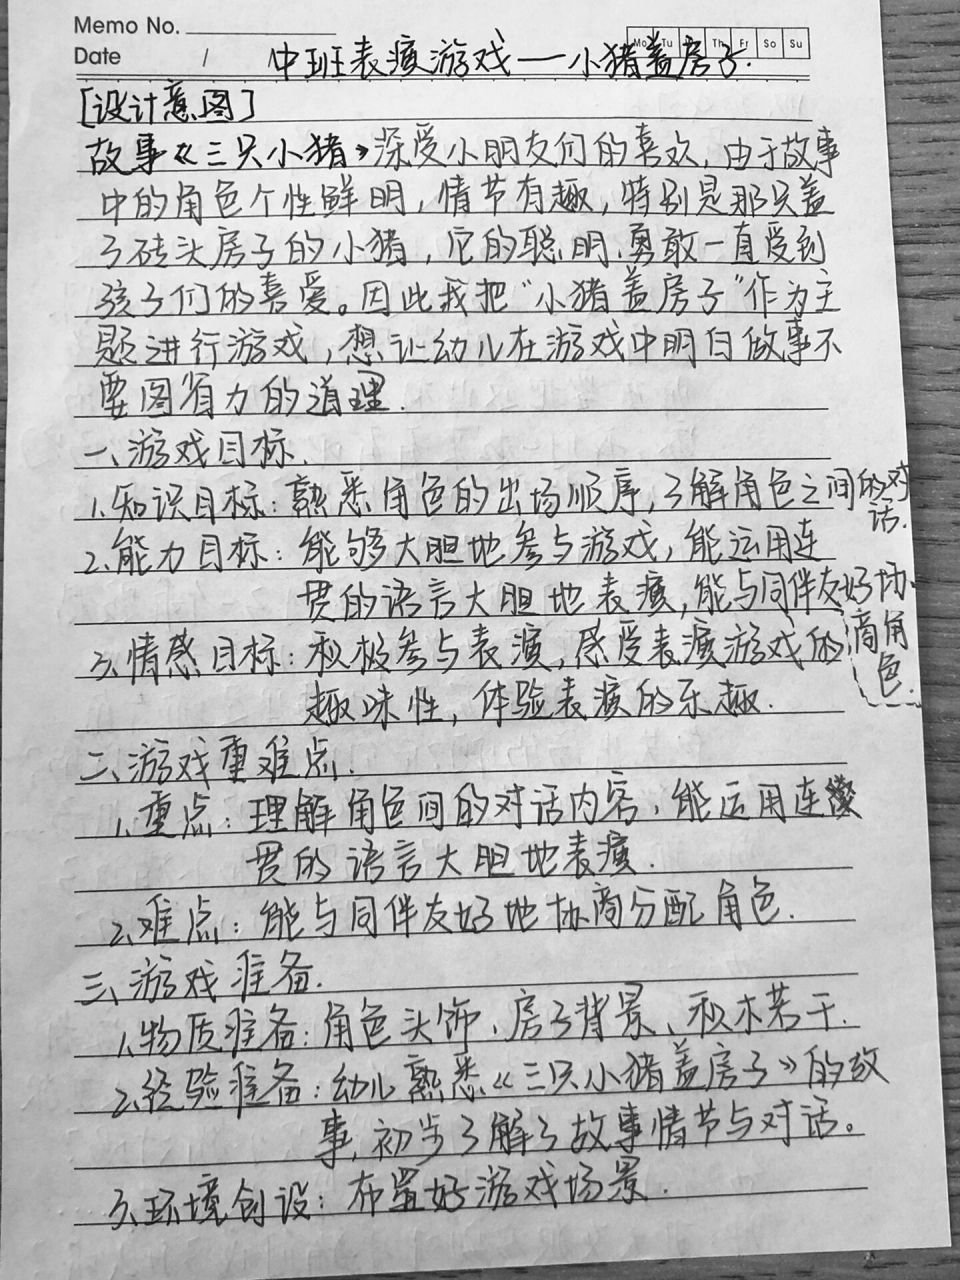 Memo No.
Mo Tu Th Fr Sa Su
Date /
中班表演游戏——小猪盖房子.
[设计意图]
故事《三只小猪》深受小朋友们的喜欢,由于故事
中的角色个性鲜明,情节有趣,特别是那只盖
了砖头房子的小猪,它的聪明.勇敢一直受到
孩子们的喜爱。因此我把“小猪盖房子”作为主
题进行游戏,想让幼儿在游戏中明白做事不
要图省力的道理.
一、游戏目标.
1.知识目标:熟悉角色的出场顺序,了解角色之间的对
话.
2.能力目标:能够大胆地参与游戏,能运用连
贯的语言大胆地表演,能与同伴友好协
商角
色.
3.情感目标:积极参与表演,感受表演游戏的
趣味性,体验表演的乐趣.
二、游戏重难点.
1.重点:理解角色间的对话内容,能运用连
贯的语言大胆地表演.
2.难点:能与同伴友好地协商分配角色.
三、游戏准备.
1.物质准备:角色头饰、房子背景、积木若干.
2.经验准备:幼儿熟悉《三只小猪盖房子》的故
事,初步了解了故事情节与对话。
3.环境创设:布置好游戏场景.